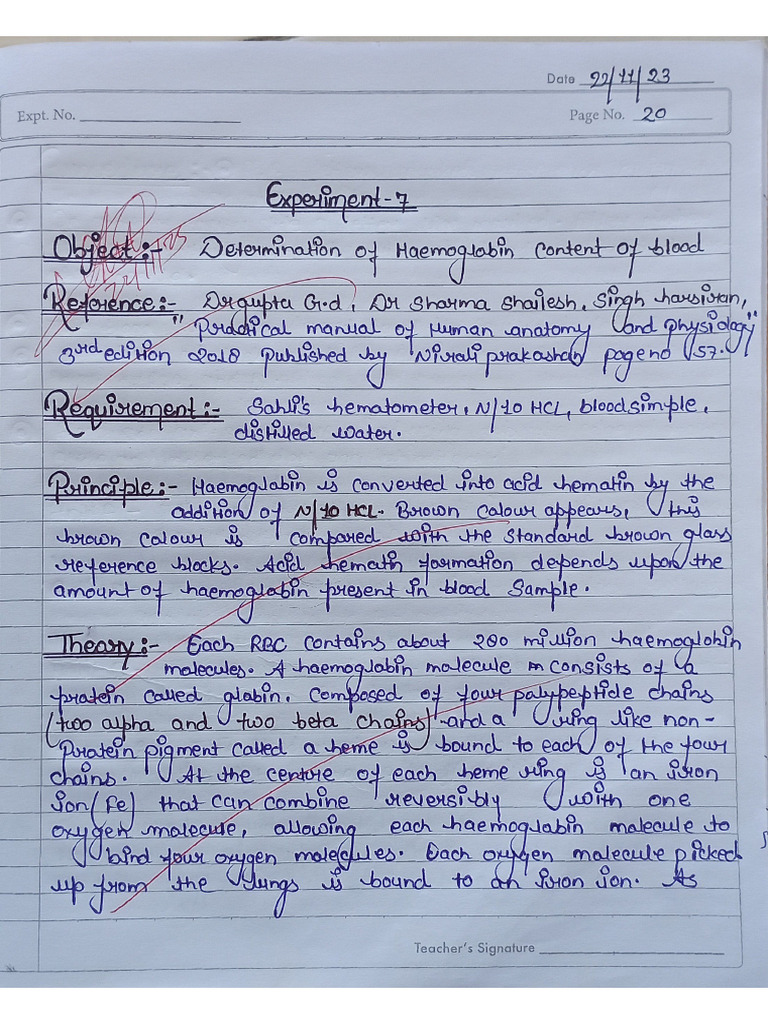 Date 22/11/23
Expt. No.
Page No. 20
Experiment-7
Object:- Determination of Haemoglabin content of blood
Reference:- Dr gupta G.d, Dr Sharma Shailesh, Singh harsiran,
"Practical manual of Human anatomy and physiology"
3rd edition 2018 published by Nirali prakashan page no 57.
Requirement:- Sahli's hematometer, N/10 HCL, blood simple,
distilled water.
Principle:- Haemoglabin is converted into acid hematin by the
addition of N/10 HCL. Brown colour appears, this
brown colour is compared with the standard brown glass
reference blocks. Acid hematin formation depends upon the
amount of haemoglabin present in blood Sample.
Theory:- Each RBC contains about 280 million haemoglobin
molecules. A haemoglabin molecule consists of a
protein called glabin. Composed of four polypeptide chains
(two alpha and two beta chains) and a ring like non-
Protein pigment called a heme is bound to each of the four
chains. At the centure of each heme ring is an iron
ion (Fe) that can combine reversibly with one
oxygen molecule, allowing each haemoglabin molecule to
bind four oxygen molecules. Each oxygen molecule picked
up from the lungs is bound to an iron ion. As
Teacher's Signature